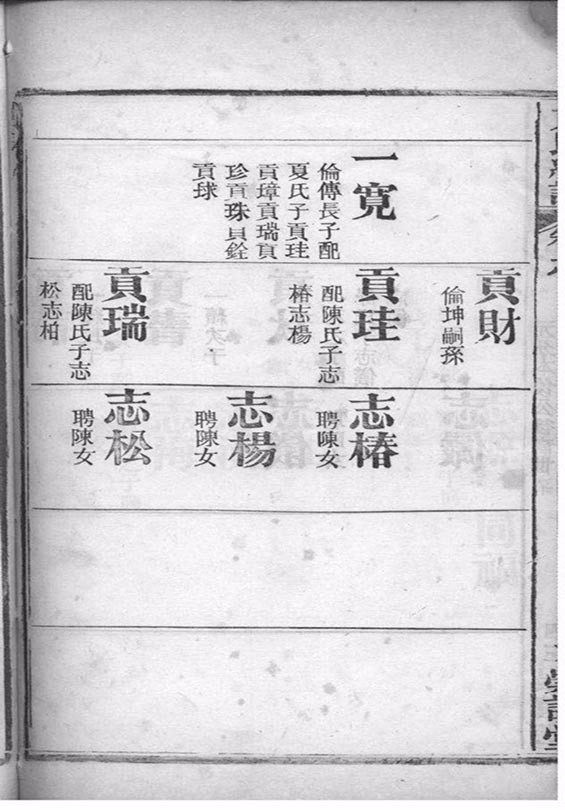 一寬
倫傳長子配
夏氏子貢珪
貢璋貢瑞貢
珍貢珠貝銓
貢球
貢財
倫坤嗣孫
貢珪
配陳氏子志
椿志楊
貢瑞
配陳氏子志
松志柏
志椿
聘陳女
志楊
聘陳女
志松
聘陳女